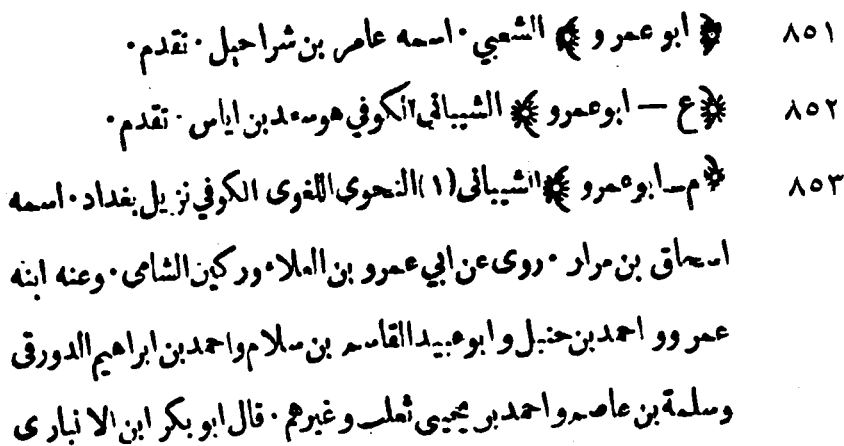 ٨٥١ ﴿ ابو عمرو ﴾ الشعبي · اسمه عامر بن شراحيل · تقدم ·
٨٥٢ ﴿ ع — ابو عمرو ﴾ الشيباني الكوفي هو سعد بن اياس · تقدم ·
٨٥٣ ﴿ م — ابو عمرو ﴾ الشيباني (١) النحوى اللغوى الكوفي نزيل بغداد · اسمه
اسحاق بن مرار · روى عن ابي عمرو بن العلاء وركين الشامى · وعنه ابنه
عمرو و احمد بن حنبل و ابو عبيد القاسم بن سلام واحمد بن ابراهيم الدورقى
وسلمة بن عاصم و احمد بن يحيى ثعلب وغيرهم · قال ابو بكر ابن الانبارى